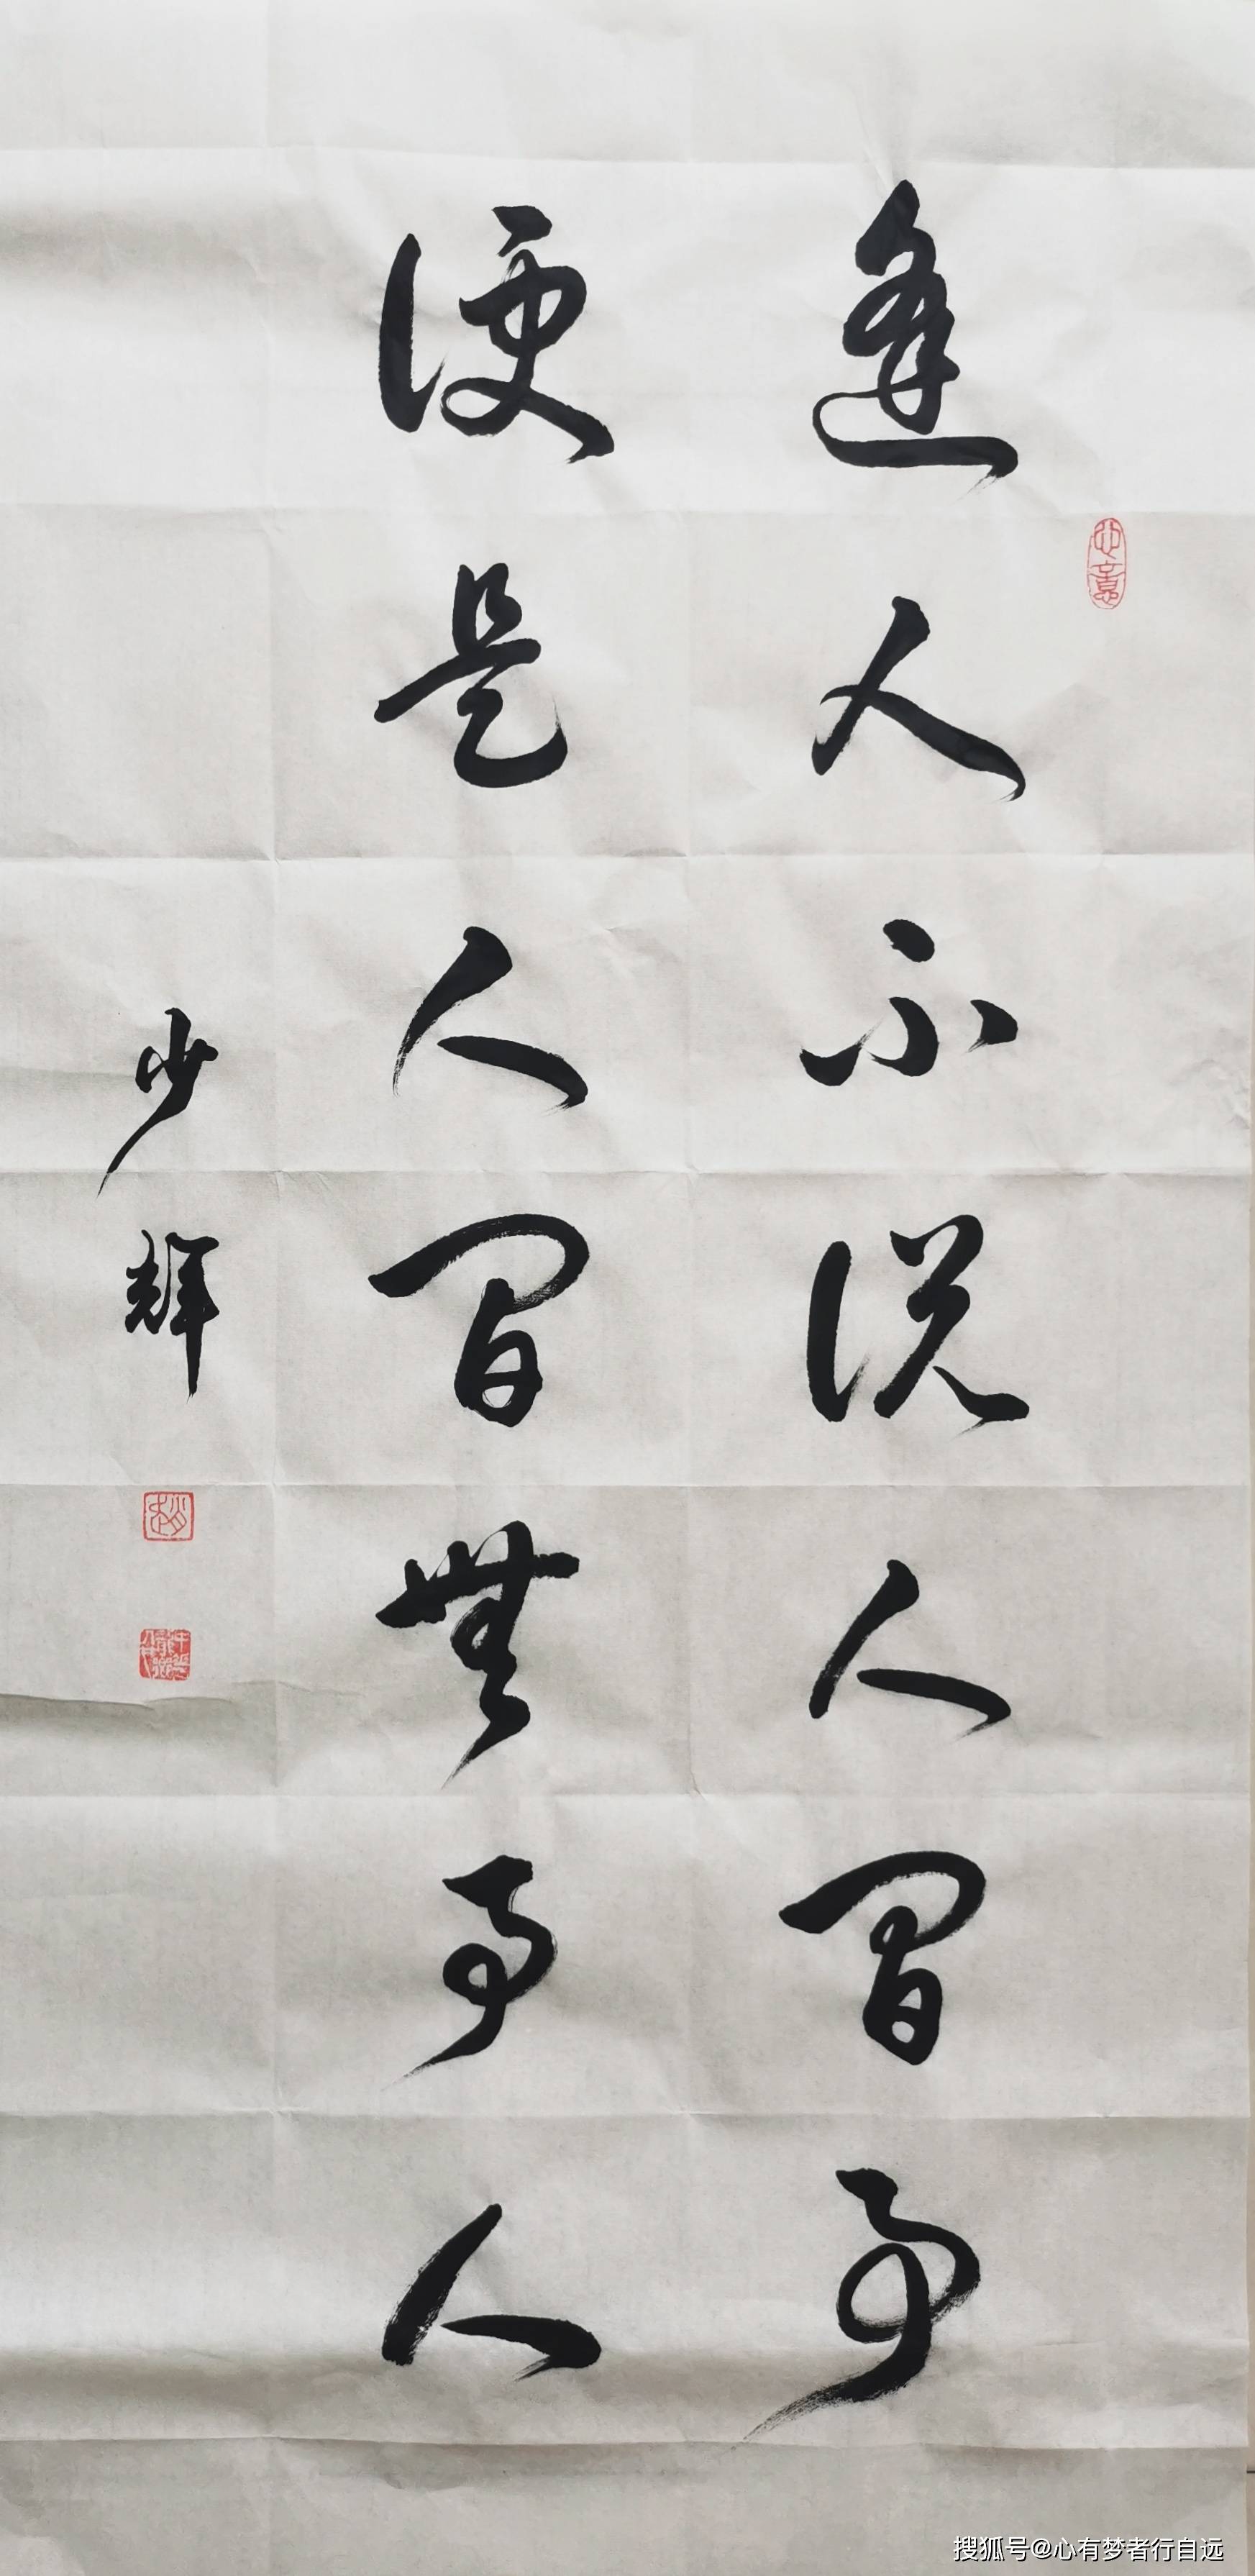 逢人不说人间事
便是人间無事人
少輝
搜狐号@心有梦者行自远